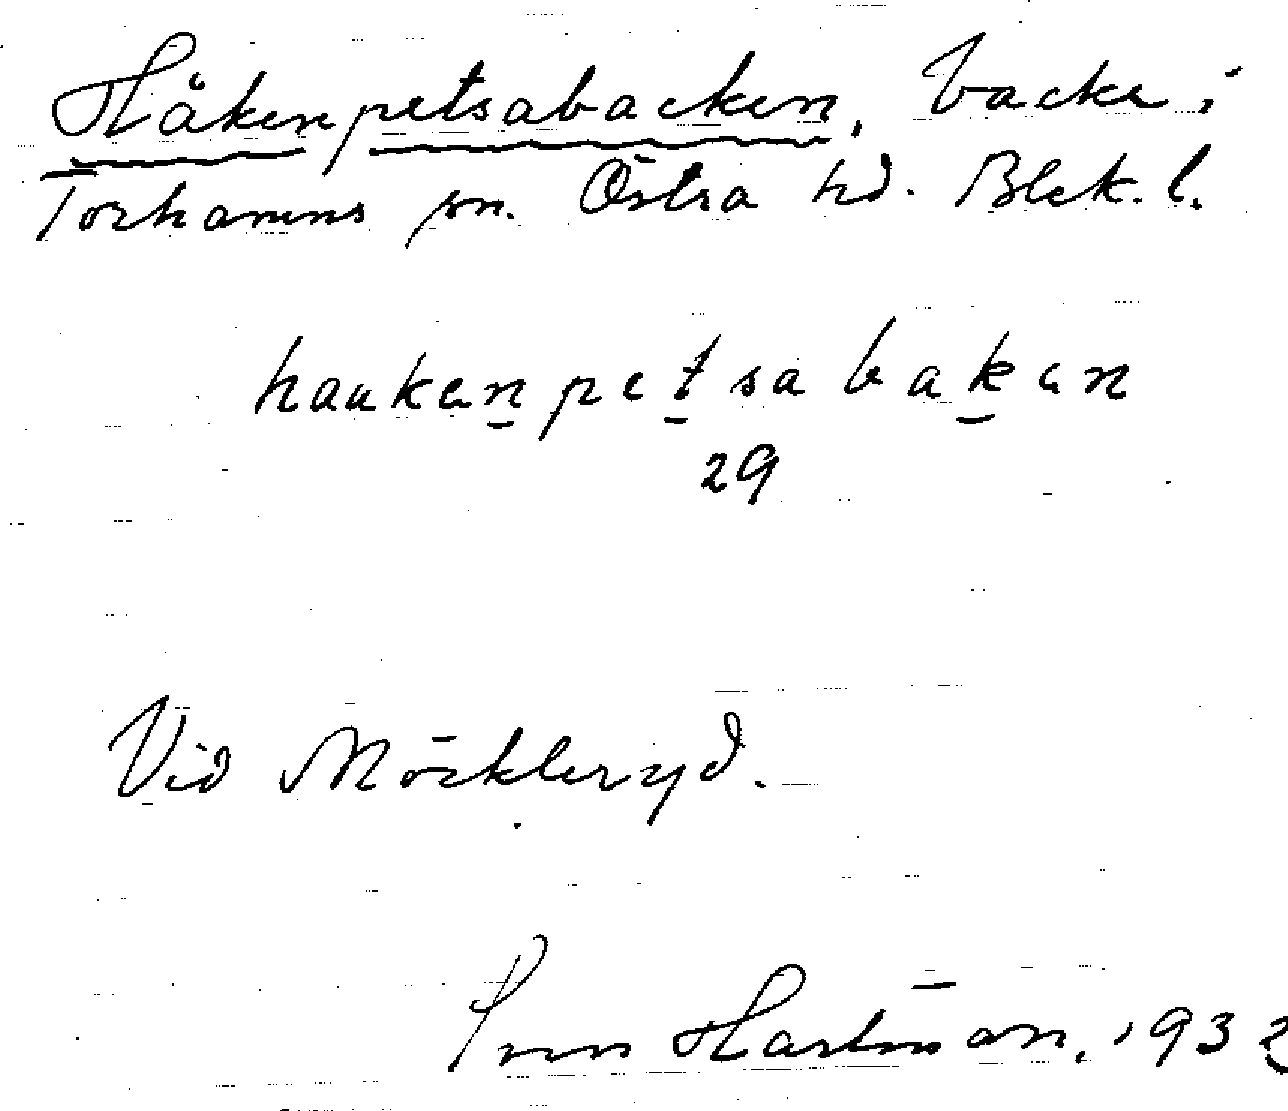 Håkenpetsabacken, backe i
Torhamns sn. Östra hd. Blek. l.
haakenpetsabaken
29
Vid Möckleryd.
Sven Hartman, 1932